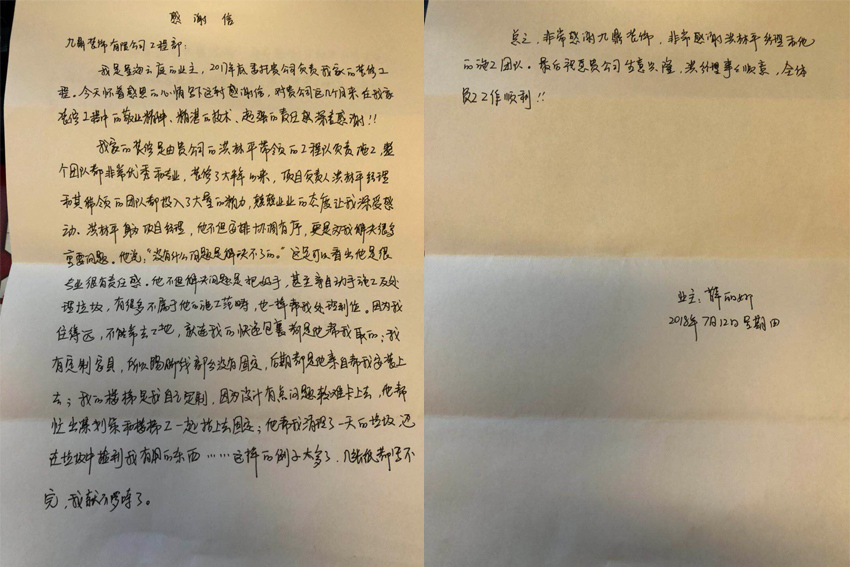 感谢信
九鼎装饰有限公司工程部：
我是星湖云庭的业主，2017年底委托贵公司负责我家的装修工
程。今天怀着感恩的心情写下这封感谢信，对贵公司这几个月来在我家
装修工程中的敬业精神、精湛的技术、超强的责任感深表感谢!!
我家的装修是由贵公司的洪林平带领的工程队负责施工，整
个团队都非常优秀和专业，装修了大半年以来，项目负责人洪林平经理
和其带领的团队都投入了大量的精力，兢兢业业的态度让我深受感
动。洪林平身为项目经理，他不但安排协调有序，更是为我解决很多
重要问题。他说："没有什么问题是解决不了的。"这足可以看出他是很
专业很有责任感。他不但解决问题是把好手，甚至亲自动手施工及处
理垃圾，有很多不属于他的施工范畴，也一样帮我处理到位。因为我
住得远，不能常去工地，就连我的快递包裹都是他帮我取的；我
有定制家具，所以踢脚线部分没有固定，后期都是他亲自帮我安装上
去；我的楼梯是我自主定制，因为设计有点问题较难卡上去，他帮
忙出谋划策和楼梯工一起抬上去固定；他帮我清理了一天的垃圾还
在垃圾中捡到我有用的东西……这样的例子太多了，几张纸都写不
完，我就不啰嗦了。
总之，非常感谢九鼎装饰，非常感谢洪林平经理和他
的施工团队。最后祝愿贵公司生意兴隆，洪经理事事顺意，全体
员工工作顺利!!
业主：薛
2018年7月12日星期四